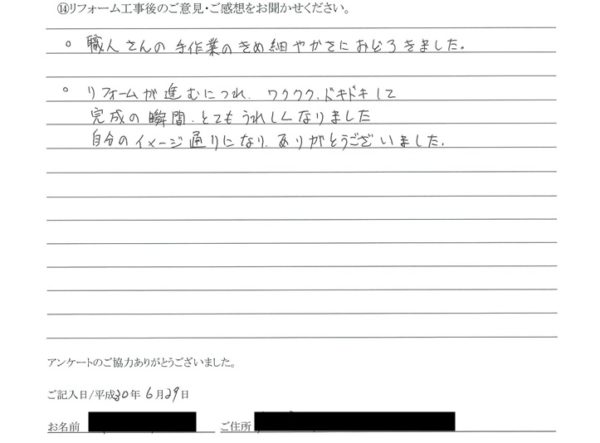 ⑭リフォーム工事後のご意見・ご感想をお聞かせください。
○ 職人さんの手作業のきめ細やかさにおどろきました。
○ リフォームが進むにつれ、ワクワク、ドキドキして
完成の瞬間、とてもうれしくなりました
自分のイメージ通りになり、ありがとうございました。
アンケートのご協力ありがとうございました。
ご記入日/平成30年6月29日
お名前 ご住所